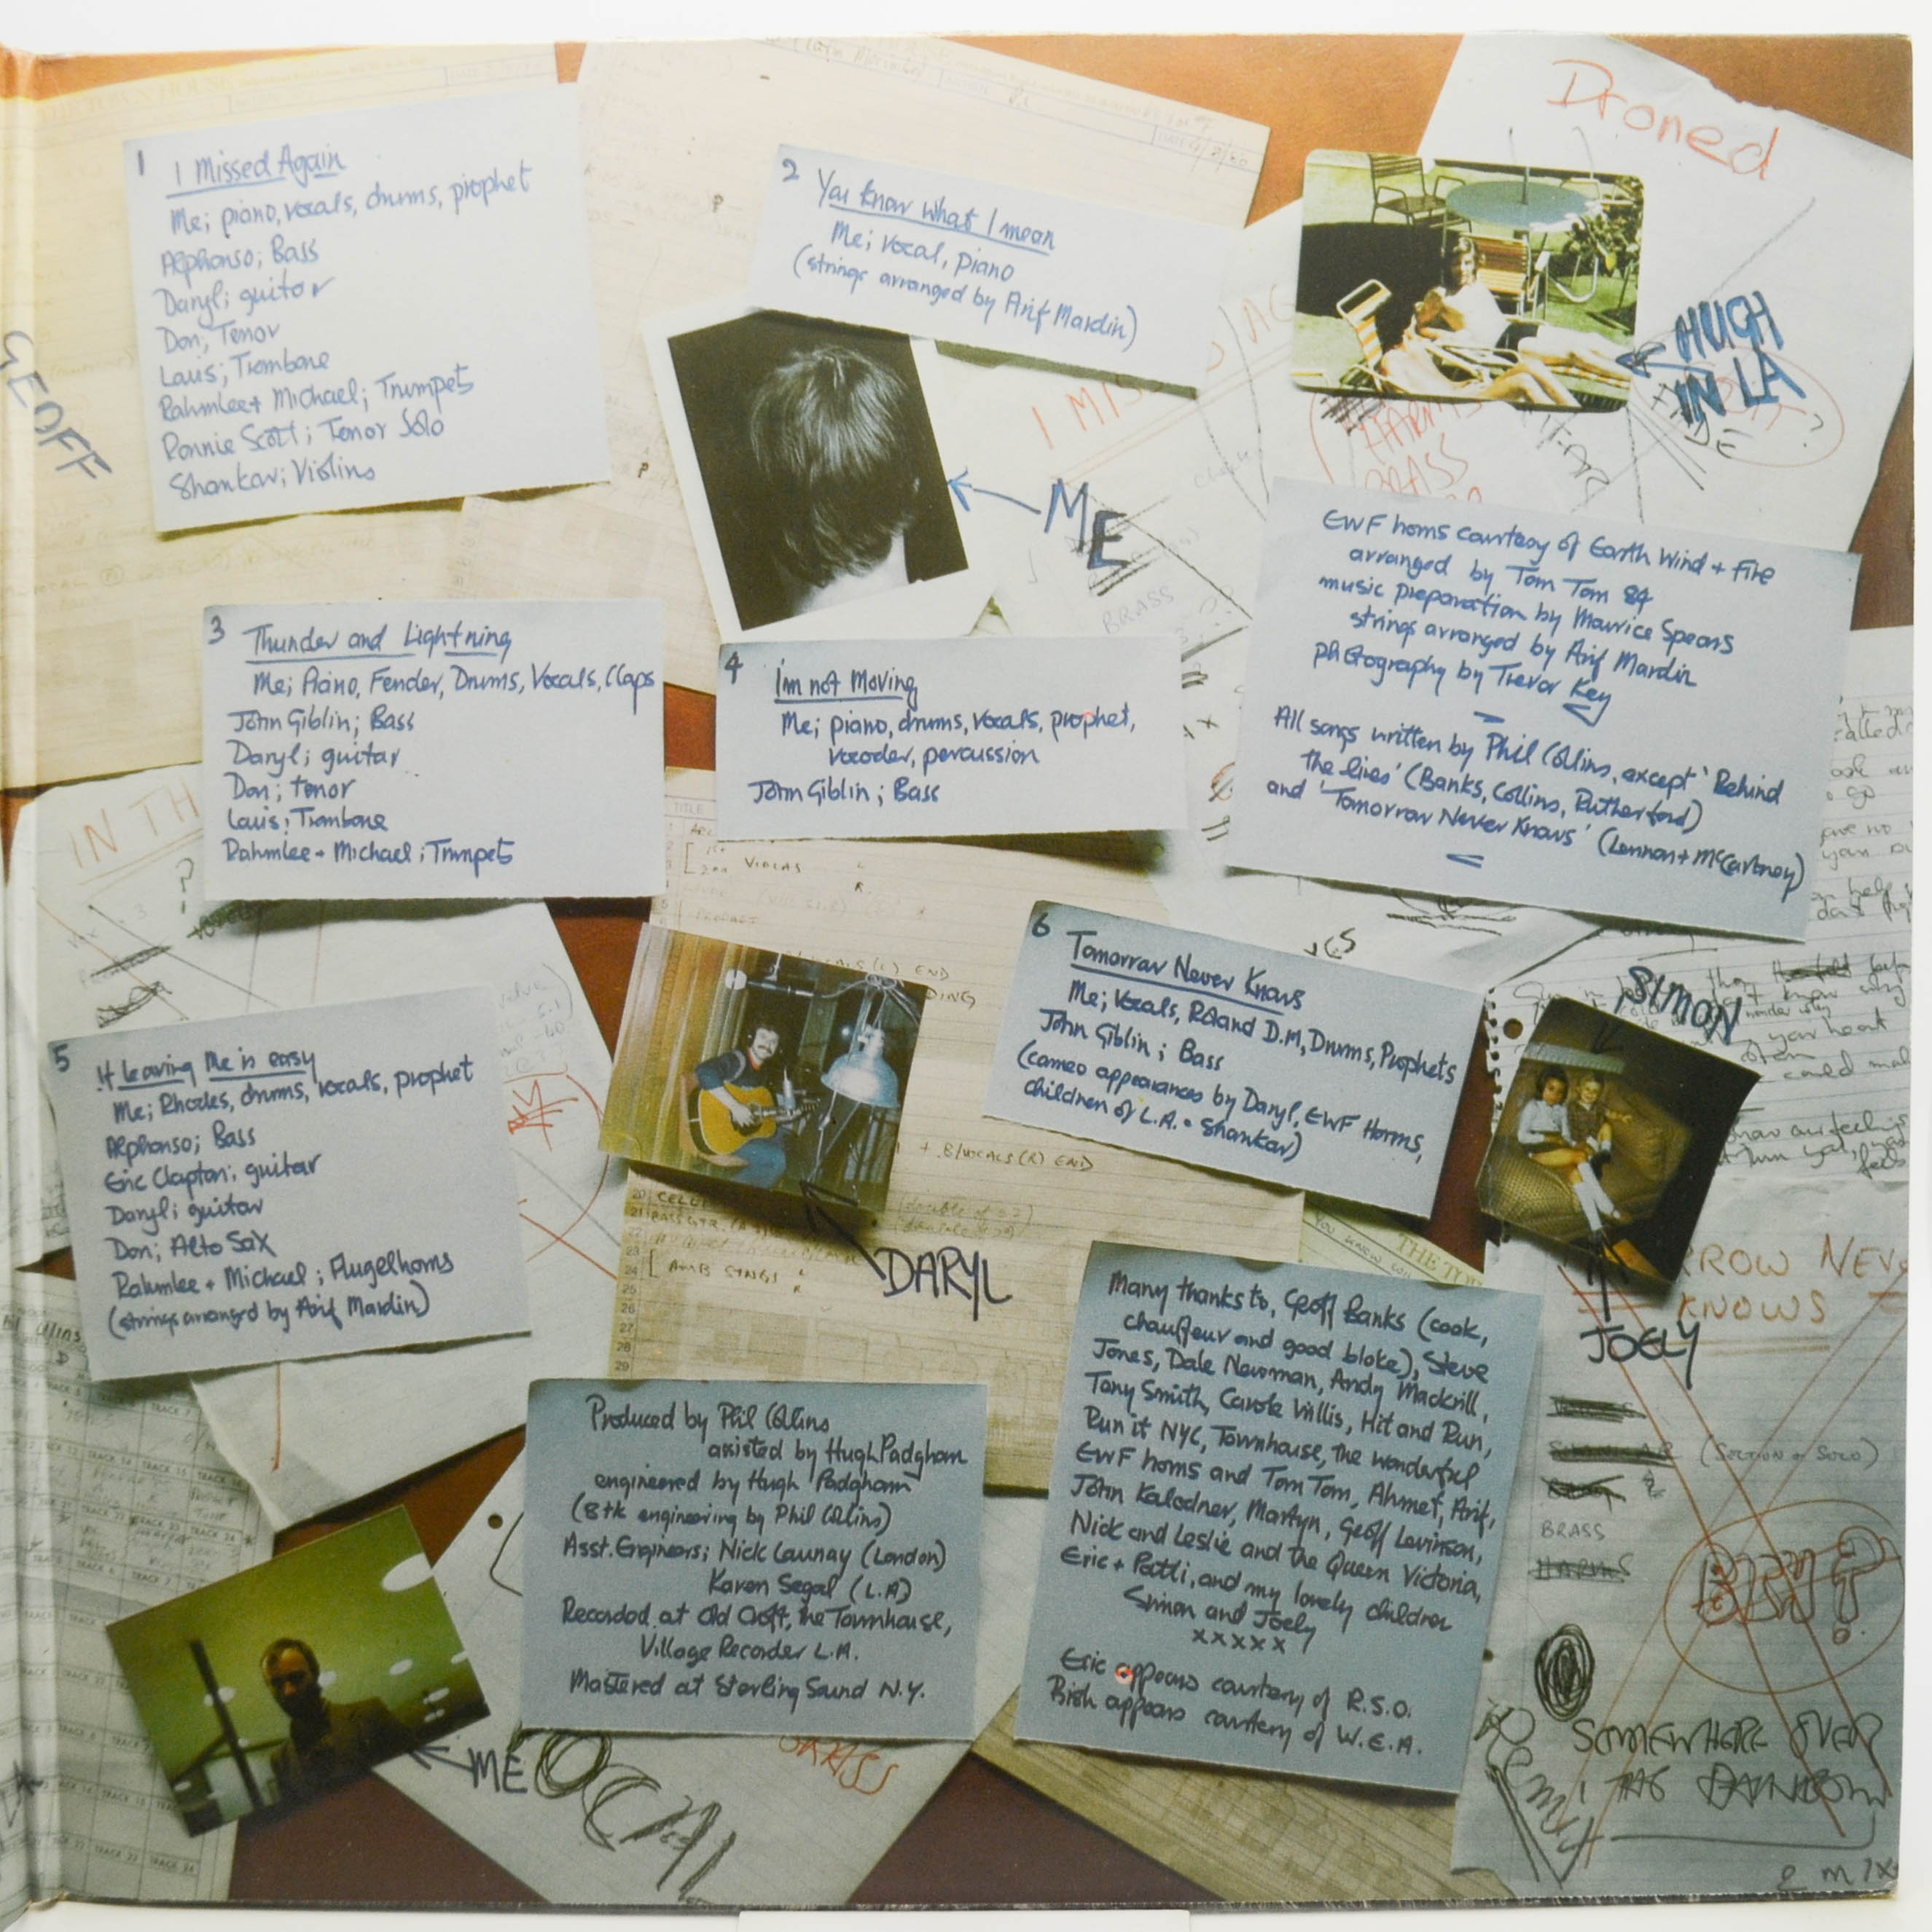 GEOFF
1
I Missed Again
Me; piano, vocals, drums, prophet
Alphonso; Bass
Daryl; guitar
Don; Tenor
Louis; Trombone
Rahmlee + Michael; Trumpets
Ronnie Scott; Tenor Solo
Shankar; Violins
2
You know what I mean
Me; vocal, piano
(strings arranged by Arif Mardin)
Droned
HUGH
IN LA
ME
EWF horns courtesy of Earth Wind + Fire
arranged by Tom Tom 84
music preparation by Maurice Spears
strings arranged by Arif Mardin
photography by Trevor Key
All songs written by Phil Collins, except 'Behind
the lines' (Banks, Collins, Rutherford)
and 'Tomorrow Never Knows' (Lennon + McCartney)
3
Thunder and Lightning
Me; Piano, Fender, Drums, Vocals, Claps
John Giblin; Bass
Daryl; guitar
Don; tenor
Louis; Trombone
Rahmlee + Michael; Trumpets
4
I'm not Moving
Me; piano, drums, vocals, prophet,
vocoder, percussion
John Giblin; Bass
IN TH
BRASS
TITLE
VIOLAS
5
If leaving Me is easy
Me; Rhodes, drums, vocals, prophet
Alphonso; Bass
Eric Clapton; guitar
Daryl; guitar
Don; Alto Sax
Rahmlee + Michael; Flugelhorns
(strings arranged by Arif Mardin)
DARYL
6
Tomorrow Never Knows
Me; Vocals, Roland D.M, Drums, Prophets
John Giblin; Bass
(cameo appearances by Daryl, EWF Horns,
children of L.A. + Shankar)
+ B/VOCALS (R) END
SIMON
JOELY
RROW NEV
KNOWS
Produced by Phil Collins
assisted by Hugh Padgham
engineered by Hugh Padgham
(8tk engineering by Phil Collins)
Asst. Engineers; Nick Launay (London)
Karen Segal (L.A)
Recorded at Old Croft, the Townhouse,
Village Recorder L.A.
Mastered at Sterling Sound N.Y.
Many thanks to, Geoff Banks (cook,
chauffeur and good bloke), Steve
Jones, Dale Newman, Andy Mackrill,
Tony Smith, Carole Willis, Hit and Run,
Run it NYC, Townhouse, the wonderful
EWF horns and Tom Tom, Ahmet, Arif,
John Kalodner, Martyn, Geoff Levinson,
Nick and Leslie and the Queen Victoria,
Eric + Patti, and my lovely children
Simon and Joely
xxxxx
Eric appears courtesy of R.S.O.
Bish appears courtesy of W.E.A.
ME
BRASS
(SECTION + SOLO)
BRASS
SOMEWHERE OVER
THE RAINBOW